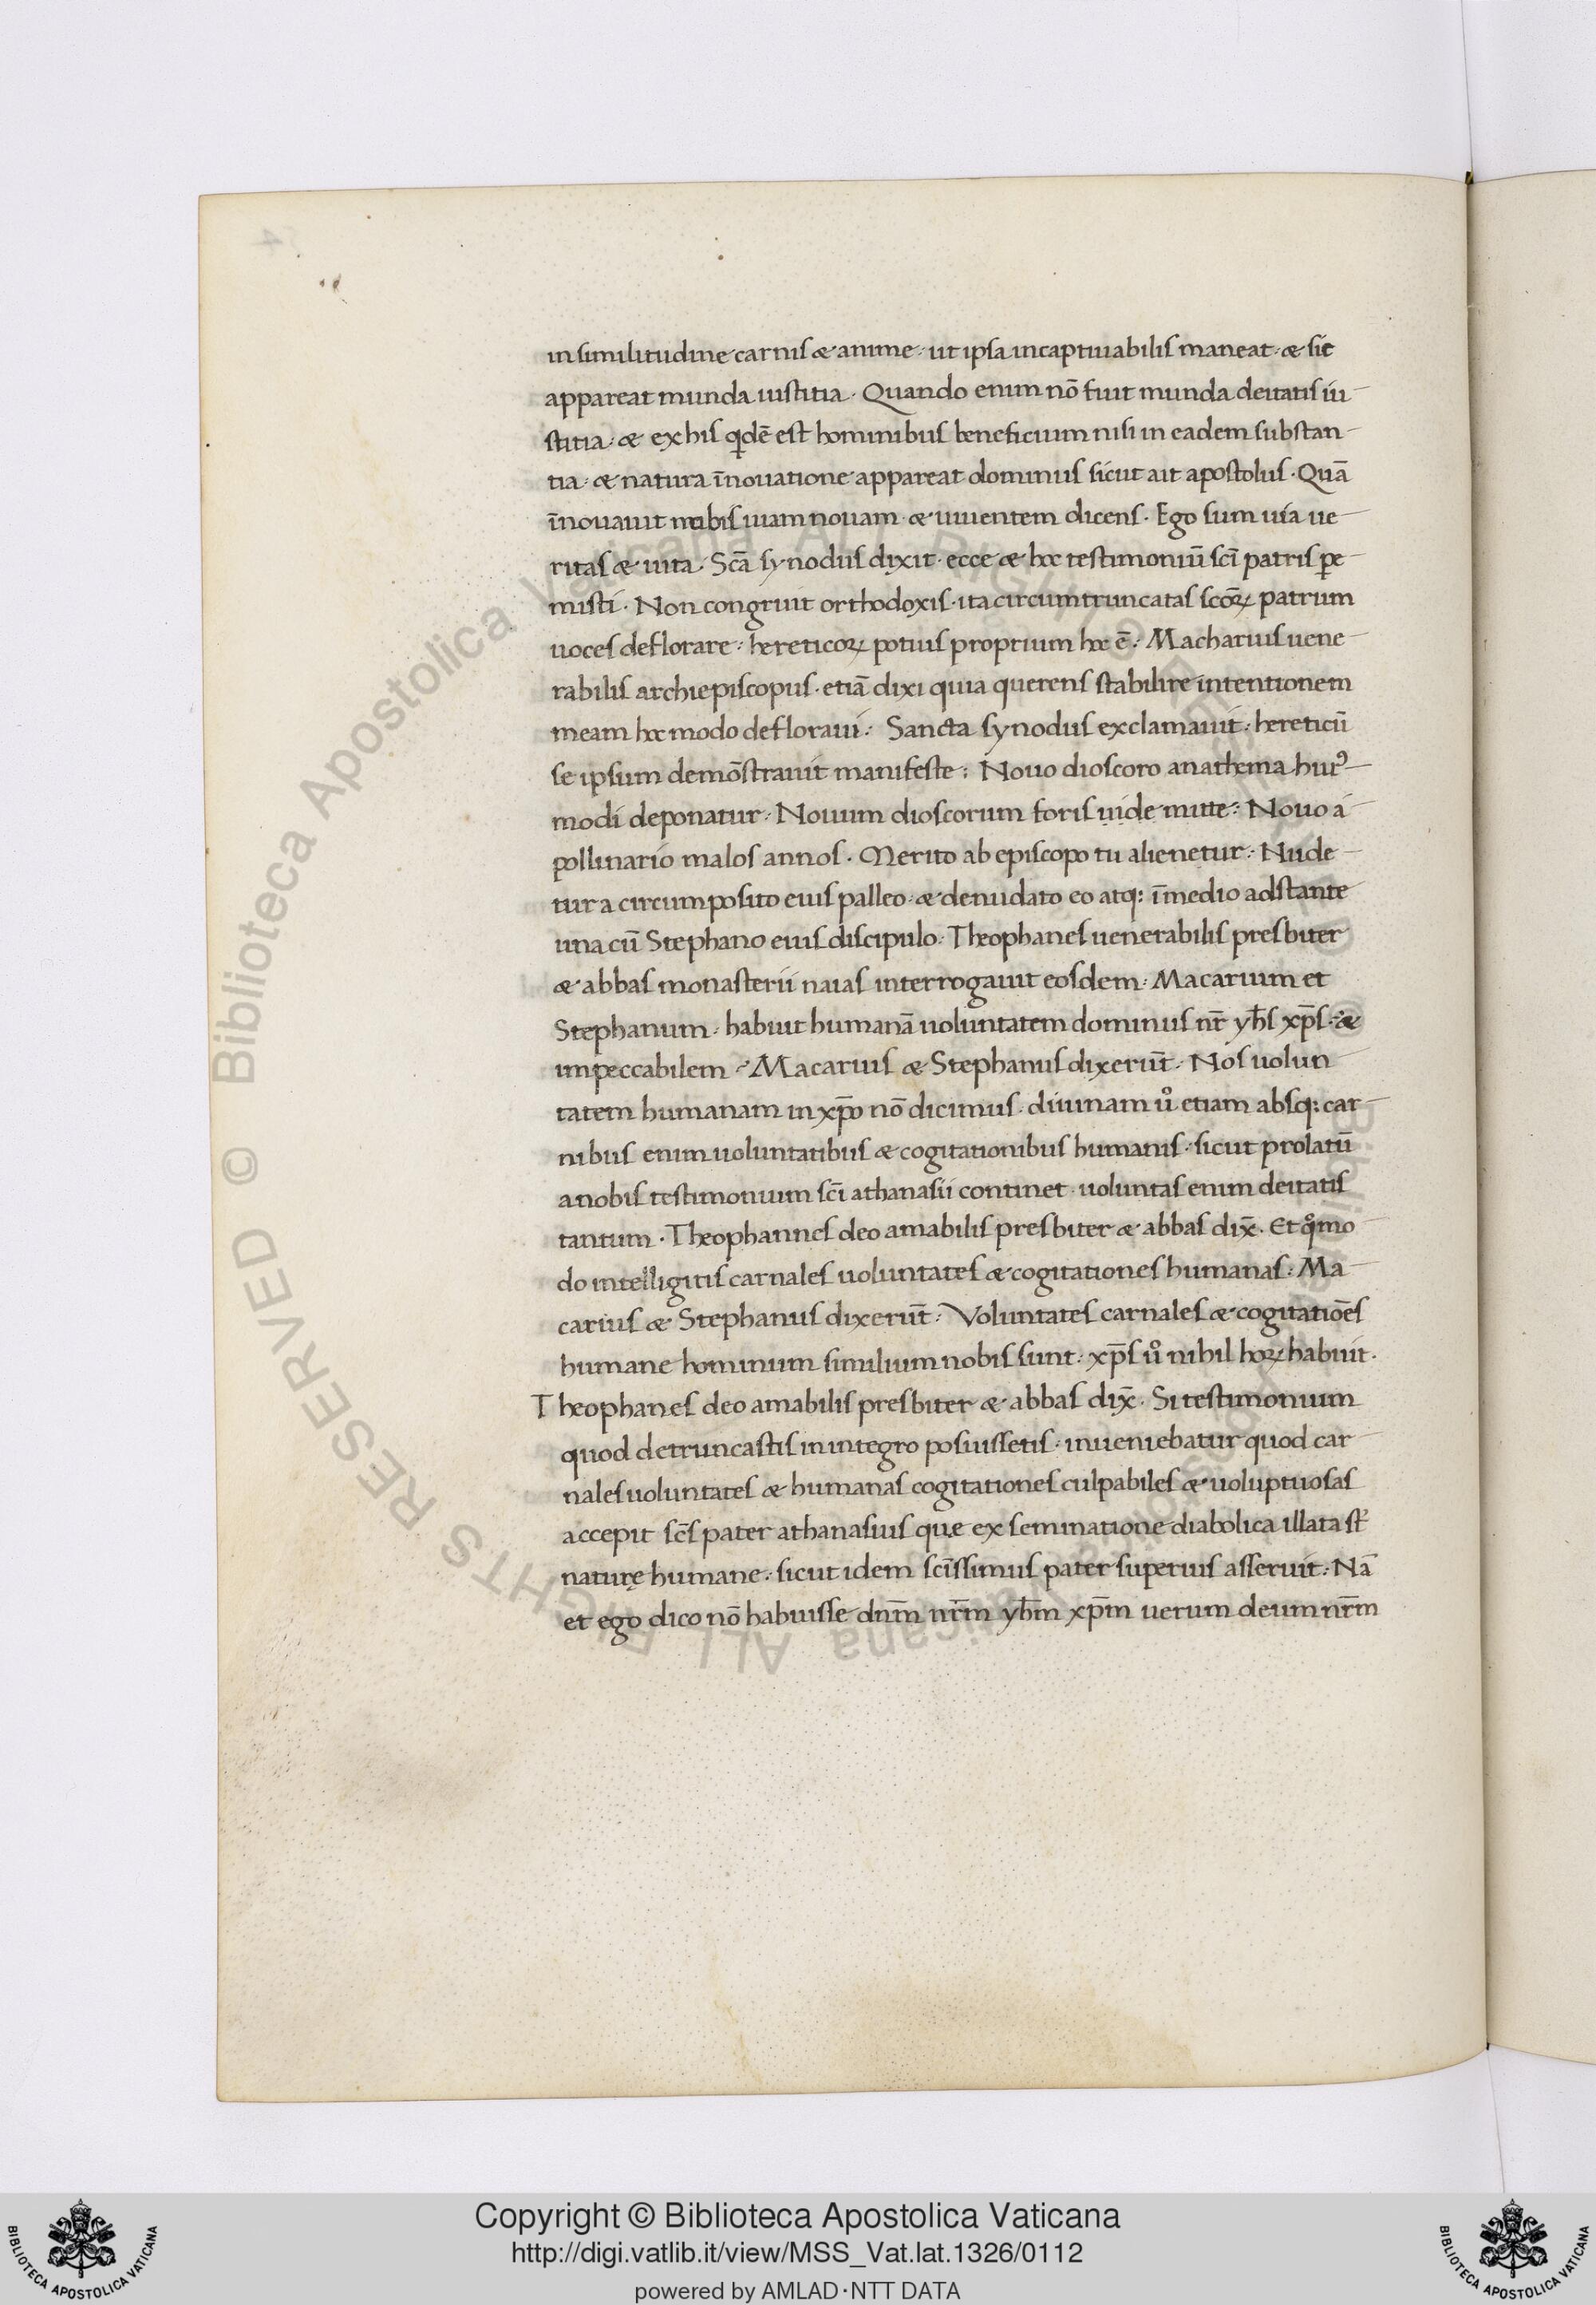 in similitudine carnis & anime· ut ipsa incaptivabilis maneat· & sic
appareat munda iustitia· Quando enim nō fuit munda deitatis iu-
stitia· & ex his qidē est hominibus beneficium nisi in eadem substan-
tia· & natura īnouatione appareat dominus sicut ait apostolus· Quā
īnouauit nobis uiam nouam & uiuentem dicens· Ego sum uia ue-
ritas & uita· Scā synodus dixit· ecce & hoc testimoniū scī patris pe-
misti· Non congruit orthodoxis· ita circumtruncatas scōꝝ patrum
uoces deflorare: hereticoꝝ potius proprium hoc ē: Macharius uene-
rabilis archiepiscopus· etiā dixi quia querens stabilire intentionem
meam hoc modo defloraui: Sancta synodus exclamauit: hereticū
se ipsum demōstrauit manifeste: Nouo dioscoro anathema huiꝰ-
modi deponatur: Nouum dioscorum foris uide mitte: Nouo a-
pollinario malos annos· Merito ab episcopo tu alienetur: Nude-
tur a circumposito eius palleo· & denudato eo atq: ī medio adstante
una cū Stephano eius discipulo· Theophanes uenerabilis presbiter
& abbas monasterii naias interrogauit eosdem· Macarium et
Stephanum· habuit humanā uoluntatem dominus nr̄ yhs̄ xps̄· &
impeccabilem· Macarius & Stephanus dixerūt· Nos uolun-
tatem humanam in xpō nō dicimus· diuinam uͦ etiam absq: car-
nibus enim uoluntatibus & cogitationibus humanis· sicut prolatū
a nobis testimonium scī athanasii continet· uoluntas enim deitatis
tantum· Theophannes deo amabilis presbiter & abbas dix̄· Et qͦmo-
do intelligitis carnales uoluntates & cogitationes humanas: Ma-
carius & Stephanus dixerūt: Voluntates carnales & cogitatiōes
humane hominum similium nobis sunt: xps̄ uͦ nihil hoꝝ habuit·
Theophanes deo amabilis presbiter & abbas dix̄· Si testimonium
quod detruncastis in integro posuissetis· inueniebatur quod car-
nales uoluntates & humanas cogitationes culpabiles & uoluptuosas
accepit scs̄ pater athanasius que ex seminatione diabolica illata st̄
naturę humane: sicut idem scīssimus pater superius asseruit: Nā
et ego dico nō habuisse dnm̄ nrm̄ yhm̄ xpm̄ uerum deum nrm̄
© Biblioteca Apostolica Vaticana ALL RIGHTS RESERVED
© Biblioteca Apostolica Vaticana ALL RIGHTS RESERVED
Copyright © Biblioteca Apostolica Vaticana
http://digi.vatlib.it/view/MSS_Vat.lat.1326/0112
powered by AMLAD·NTT DATA
BIBLIOTECA APOSTOLICA VATICANA
BIBLIOTECA APOSTOLICA VATICANA